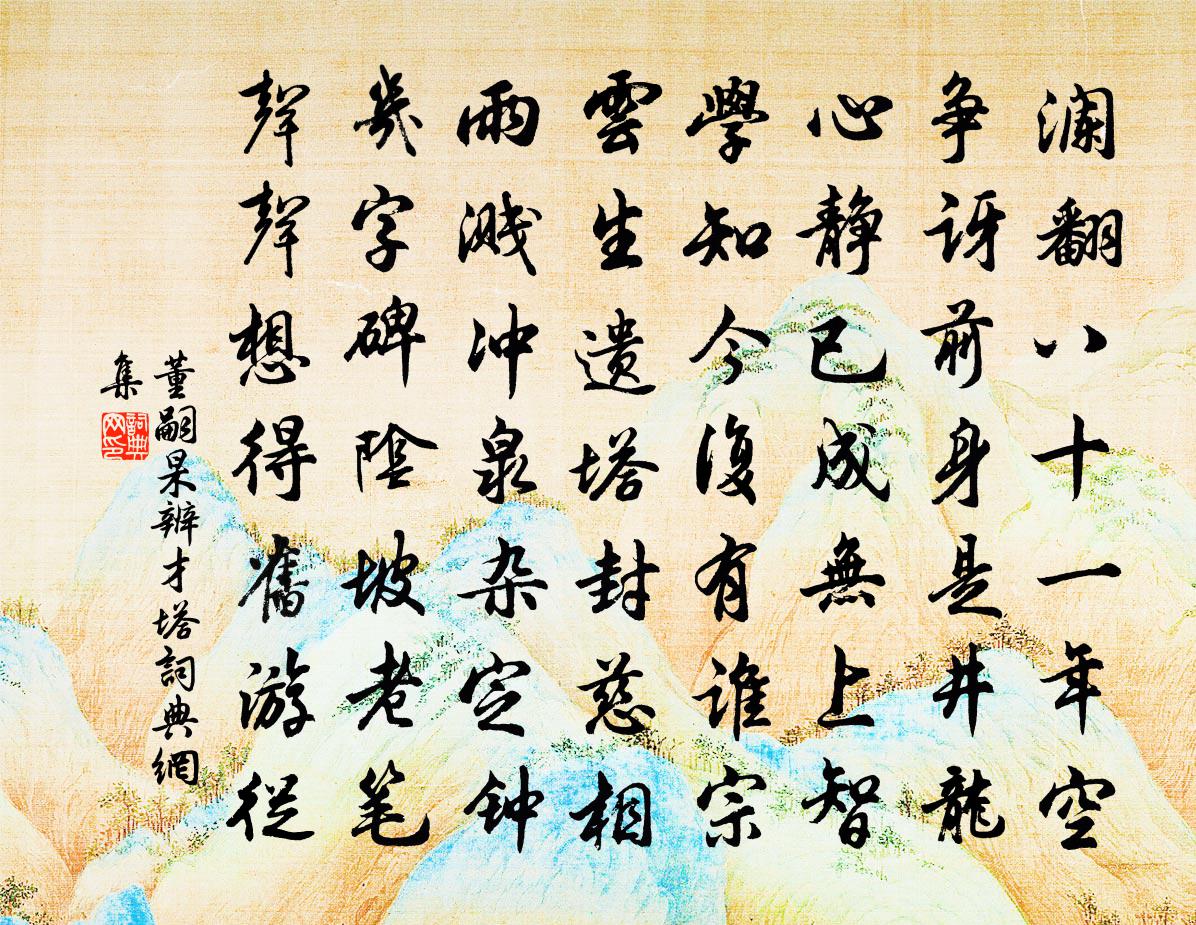 澜翻八十一年空
争讶前身是井龍
心静已成無上智
學知今復有誰宗
雲生遗塔封慈相
雨溅冲泉杂定钟
幾字碑陰坡老笔
聲聲想得舊游從
董嗣杲辨才塔詞典網
集
詞典
网印